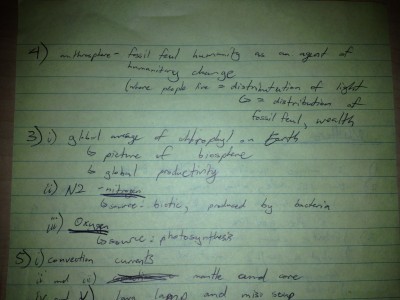 4) anthrosphere - fossil fuel humanity as an agent of
humanitary change
(where people live = distribution of light
↳ = distribution of
fossil fuel, wealth
3) i) global image of chlorophyl on Earth
↳ picture of biosphere
↳ global productivity
ii) N2 - nitrogen
↳ source: biotic, produced by bacteria
iii) Oxygen
↳ source: photosynthesis
5) i) convection currents
ii and iii) mantle and core
iv and v) lava lamp and miso soup